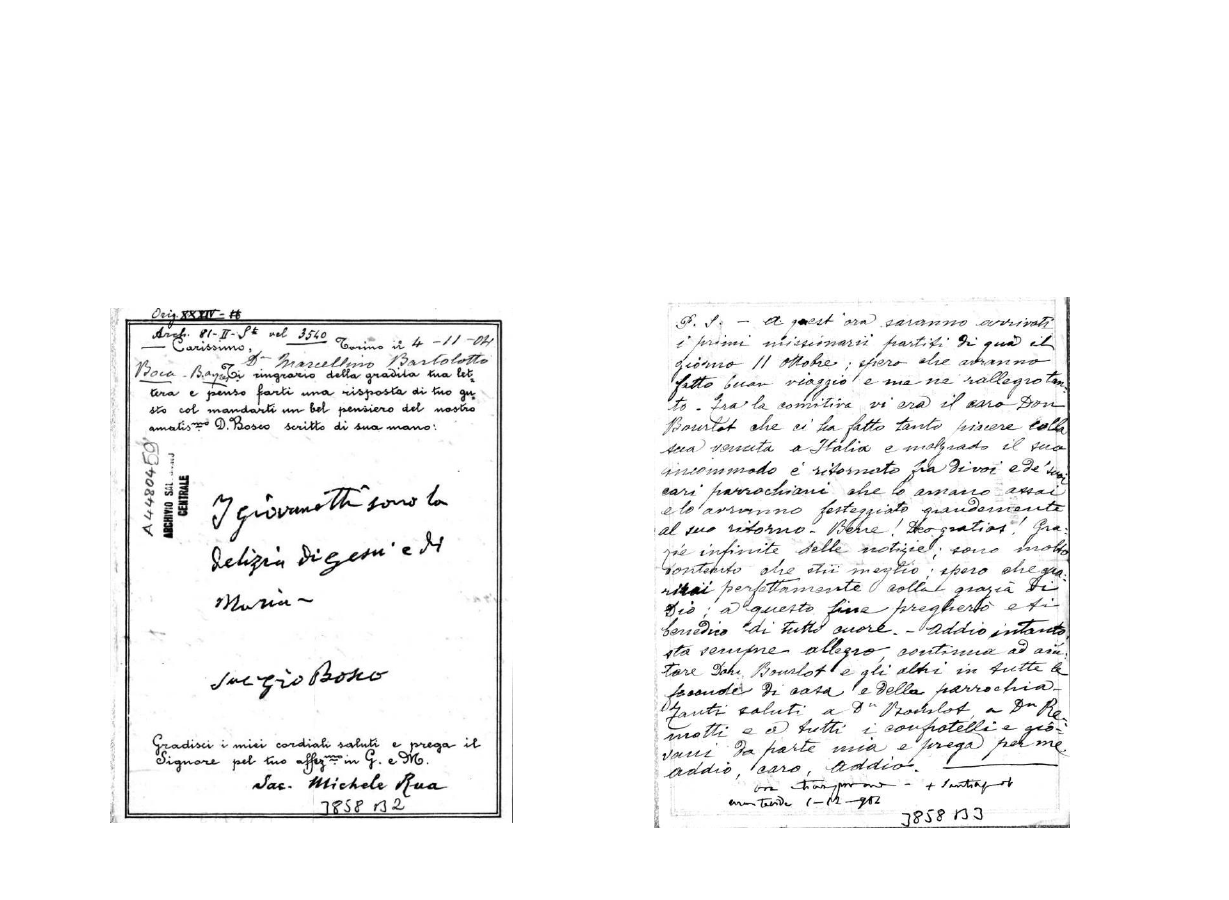 Orig. XXXIV - 
Arch. 81-II-Sk vel 3540
Carissimo, Torino il 4-11-04
Dn Marcellino Bartolotto
Boca - Ti ringrazio della gradita tua let-
tera e penso farti una risposta di tuo gu-
sto col mandarti un bel pensiero del nostro
amatismo D. Bosco scritto di sua mano:
A4480459
ARCHIVIO SAL
CENTRALE
I giovanetti sono la
delizia di Gesù e di
Maria
Sac Gio Bosco
Gradisci i miei cordiali saluti e prega il
Signore pel tuo affezmo in G. e M.
Sac. Michele Rua
3858 B2
P. S. - A quest'ora saranno arrivati
i primi missionarii partiti di qua il
giorno 11 Ottobre; spero che avranno
fatto buon viaggio e me ne rallegro tan-
to. Fra la comitiva vi era il caro Don
Bourlot che ci ha fatto tanto piacere colla
sua venuta a Italia e malgrado il suo
incommodo è ritornato fra di voi e de' suoi
cari parrochiani che lo amano assai
e lo avranno festeggiato grandemente
al suo ritorno. Bene! Deo gratias! Gra-
zie infinite delle notizie; sono molto
contento che stii meglio; spero che gua-
rirai perfettamente colla grazia di
Dio; a questo fine pregherò e ti
benedico di tutto cuore. - Addio intanto,
sta sempre allegro, continua ad aiu-
tare Don Bourlot e gli altri in tutte le
faconde di casa e della parrochia.
Tanti saluti a Dn Bourlot, a Dn Re-
motti e a tutti i confratelli e gio-
vani da parte mia e prega per me.
Addio, caro, addio.
1-12-902
3858 B3